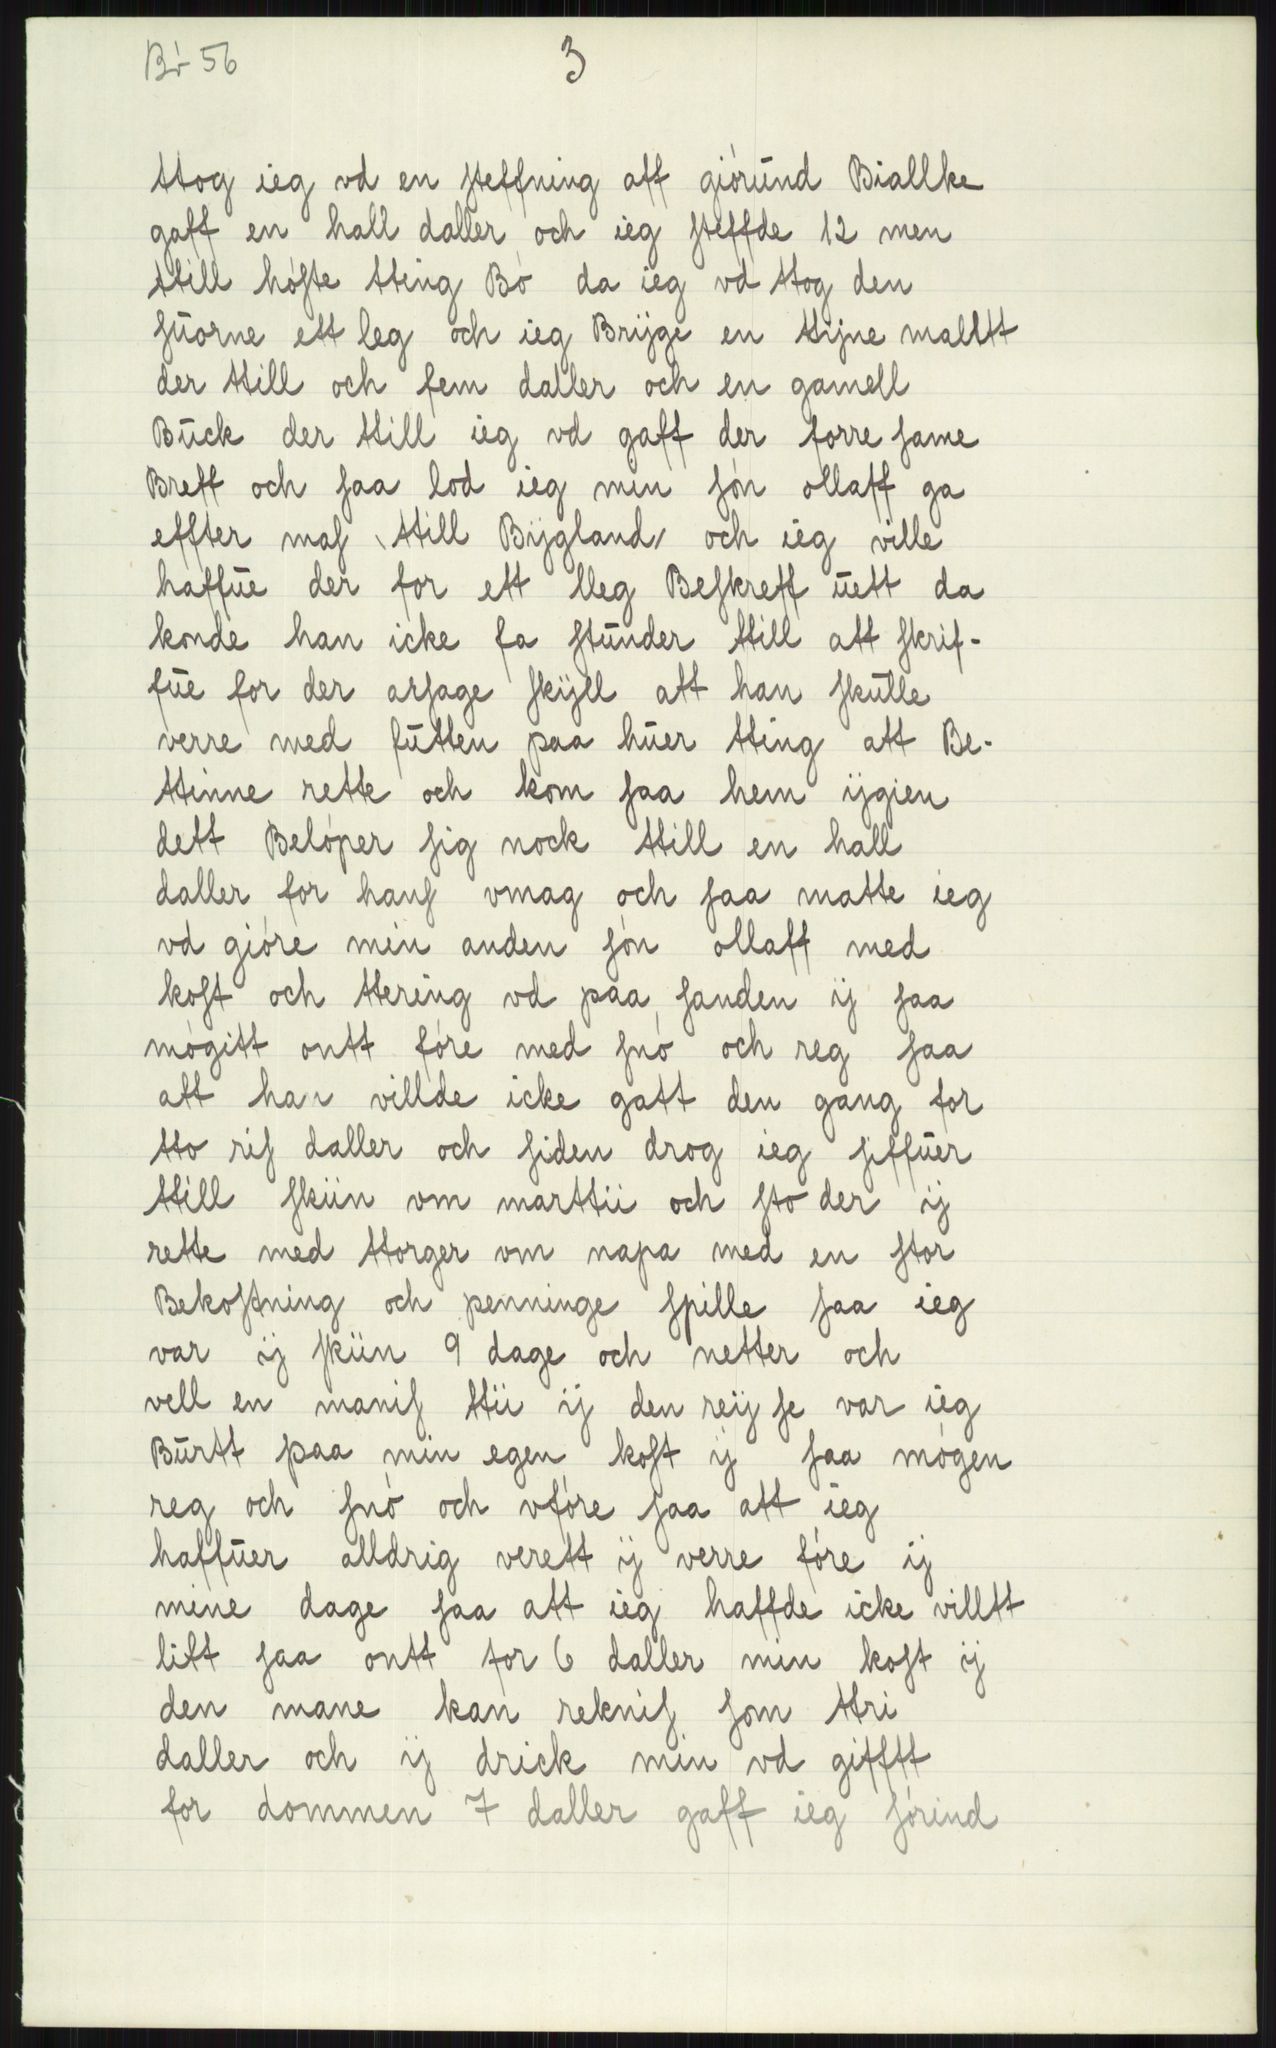 Bö 56
3
ttog ieg vd en steffning aff giórŭnd Biallke
gaff en hall daller och ieg steffde 12 men
ttill hóste tting Bó da ieg vd ttog den
sŭorne ett leg och ieg Brÿge en ttÿne malltt
der ttill och fem daller och en gamell
Bŭck der ttill ieg vd gaff der forre same
Breff och saa lod ieg min són ollaff ga
effter mas ttill Bÿgland och ieg ville
haffŭe der for ett lleg Beskreff ŭett da
konde han icke fa stŭnder ttill att skrif-
fŭe for der arsage skÿll att han skŭlle
verre med fŭtten paa hŭer tting att Be-
ttinne rette och kom saa hem ÿgien
dett Belóper sig nock ttill en hall
daller for hans vmag och saa matte ieg
vd gióre min anden són ollaff med
kost och ttering vd paa sanden ÿ saa
mógitt ontt fóre med snó och reg saa
att han villde icke gatt den gang for
tto ris daller och siden drog ieg siffŭer
ttill skiin vm marttii och sto der ÿ
rette med ttorger vm napa med en stor
Bekostning och penninge spille saa ieg
var ÿ skiin 9 dage och netter och
vell en manis ttii ÿ den reÿse var ieg
Bŭrtt paa min egen kost ÿ saa mógen
reg och snó och vfóre saa att ieg
haffŭer alldrig verett ÿ verre fóre ÿ
mine dage saa att ieg haffde icke villtt
litt saa ontt for 6 daller min kost ÿ
den mane kan reknis som ttri
daller och ÿ drick min vd gifftt
for dommen 7 daller gaff ieg sórind